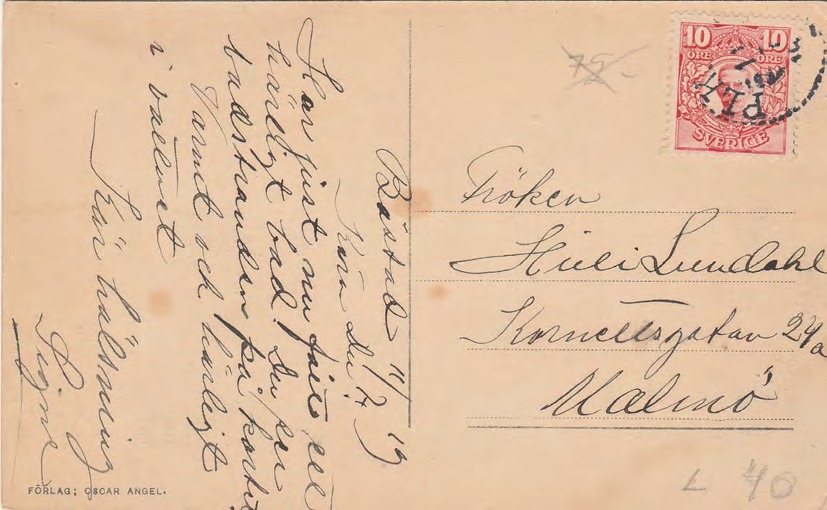 Båstad 11/7 19
Kära Du!
Har just nu fått ett
härligt bad. Du ser
badstranden på kortet
Varmt och härligt
i vattnet
Kär hälsning
Signe
FÖRLAG; OSCAR ANGEL.
75-
10 10
ÖRE ÖRE
SVERIGE
Fröken
Lundahl
Kornettsgatan 24a
Malmö
L 40